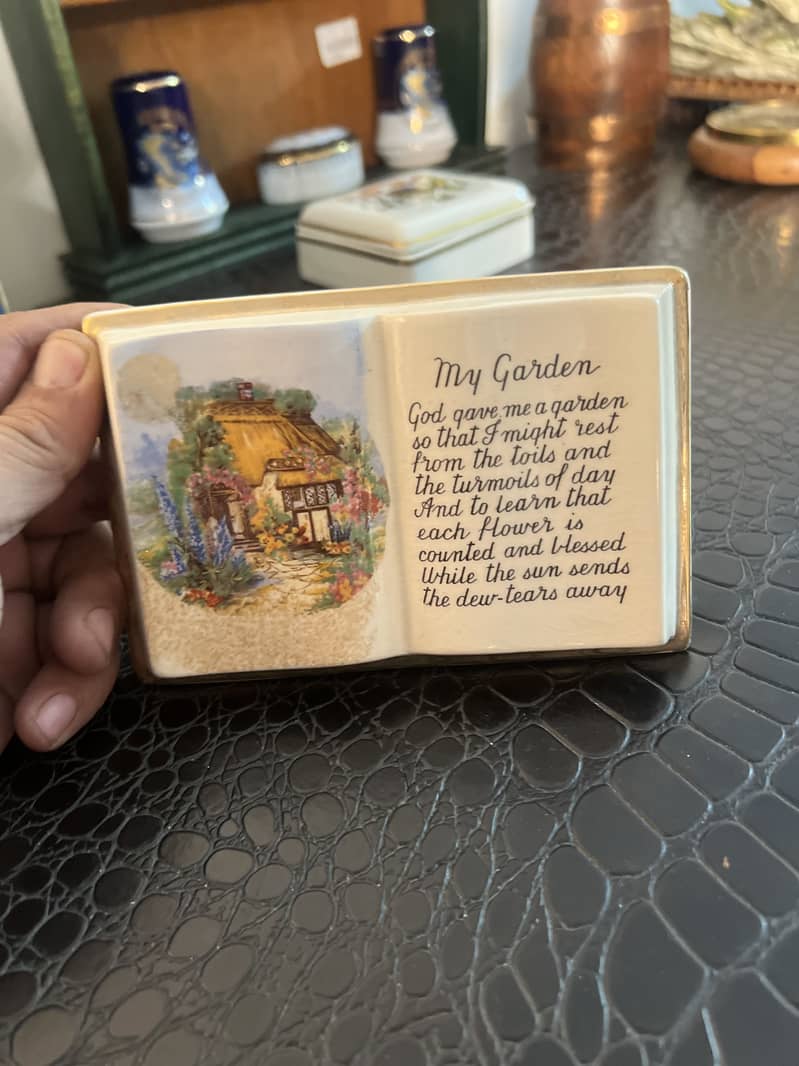 My Garden
God gave me a garden
so that I might rest
from the toils and
the turmoils of day
And to learn that
each flower is
counted and blessed
While the sun sends
the dew-tears away